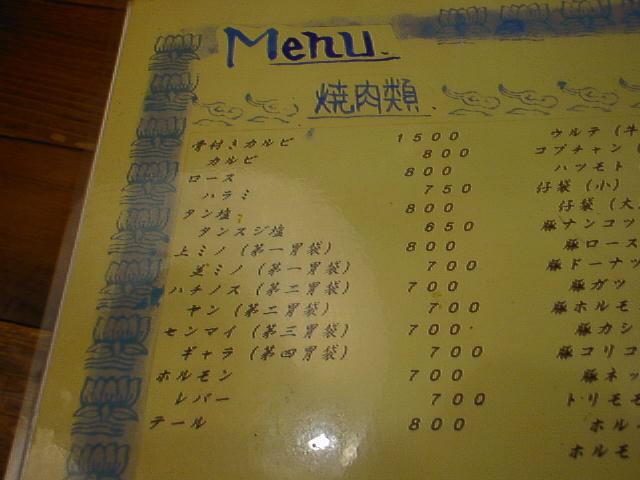 Menu.
焼肉類.
骨付きカルビ 1500
カルビ 800
ロース 800
ハラミ 750
タン塩 800
タンスジ塩 650
上ミノ (第一胃袋) 800
並ミノ (第一胃袋) 700
ハチノス (第二胃袋) 700
ヤン (第二胃袋) 700
センマイ (第三胃袋) 700
ギャラ (第四胃袋) 700
ホルモン 700
レバー 700
テール 800
ウルテ (牛
コブチャン (
ハツモト
仔袋 (小)
仔袋 (大
豚ナンコツ
豚ロース
豚ドーナツ
豚ガツ
豚ホルモ
豚カシ
豚コリコ
豚ネッ
トリモモ
ホル
ホルモ